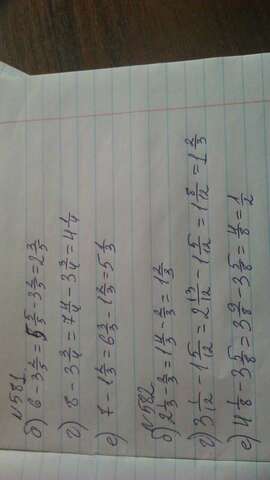 N581
б) 6 - 3 2/5 = 5 5/5 - 3 2/5 = 2 3/5
г) 8 - 3 3/4 = 7 4/4 - 3 3/4 = 4 1/4
е) 7 - 1 2/3 = 6 3/3 - 1 2/3 = 5 1/3
N582
б) 2 1/3 - 2/3 = 1 4/3 - 2/3 = 1 2/3
г) 3 1/12 - 1 5/12 = 2 13/12 - 1 5/12 = 1 8/12 = 1 2/3
е) 4 1/8 - 3 5/8 = 3 9/8 - 3 5/8 = 4/8 = 1/2